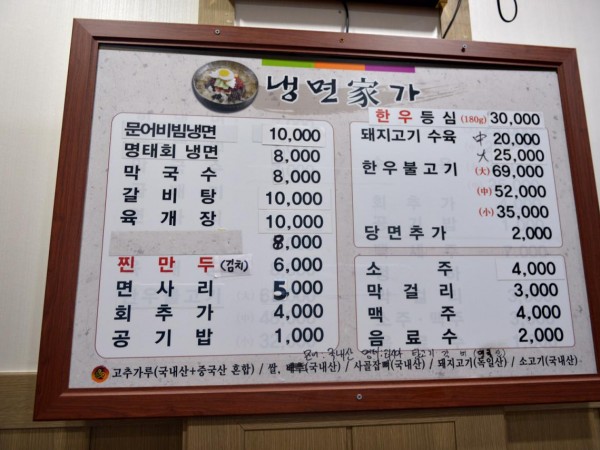 냉면家가
문어비빔냉면 10,000
명태회 냉면 8,000
막국수 8,000
갈비탕 10,000
육개장 10,000
8,000
찐만두 (김치) 6,000
면사리 5,000
회추가 4,000
공기밥 1,000
한우등심 (180g) 30,000
돼지고기 수육 中 20,000
大 25,000
한우불고기 (大) 69,000
(中) 52,000
(小) 35,000
당면추가 2,000
소주 4,000
막걸리 3,000
맥주 4,000
음료수 2,000
국내산
고추가루(국내산+중국산 혼합) / 쌀, 배추(국내산) / 사골잡뼈(국내산) / 돼지고기(독일산) / 소고기(국내산)